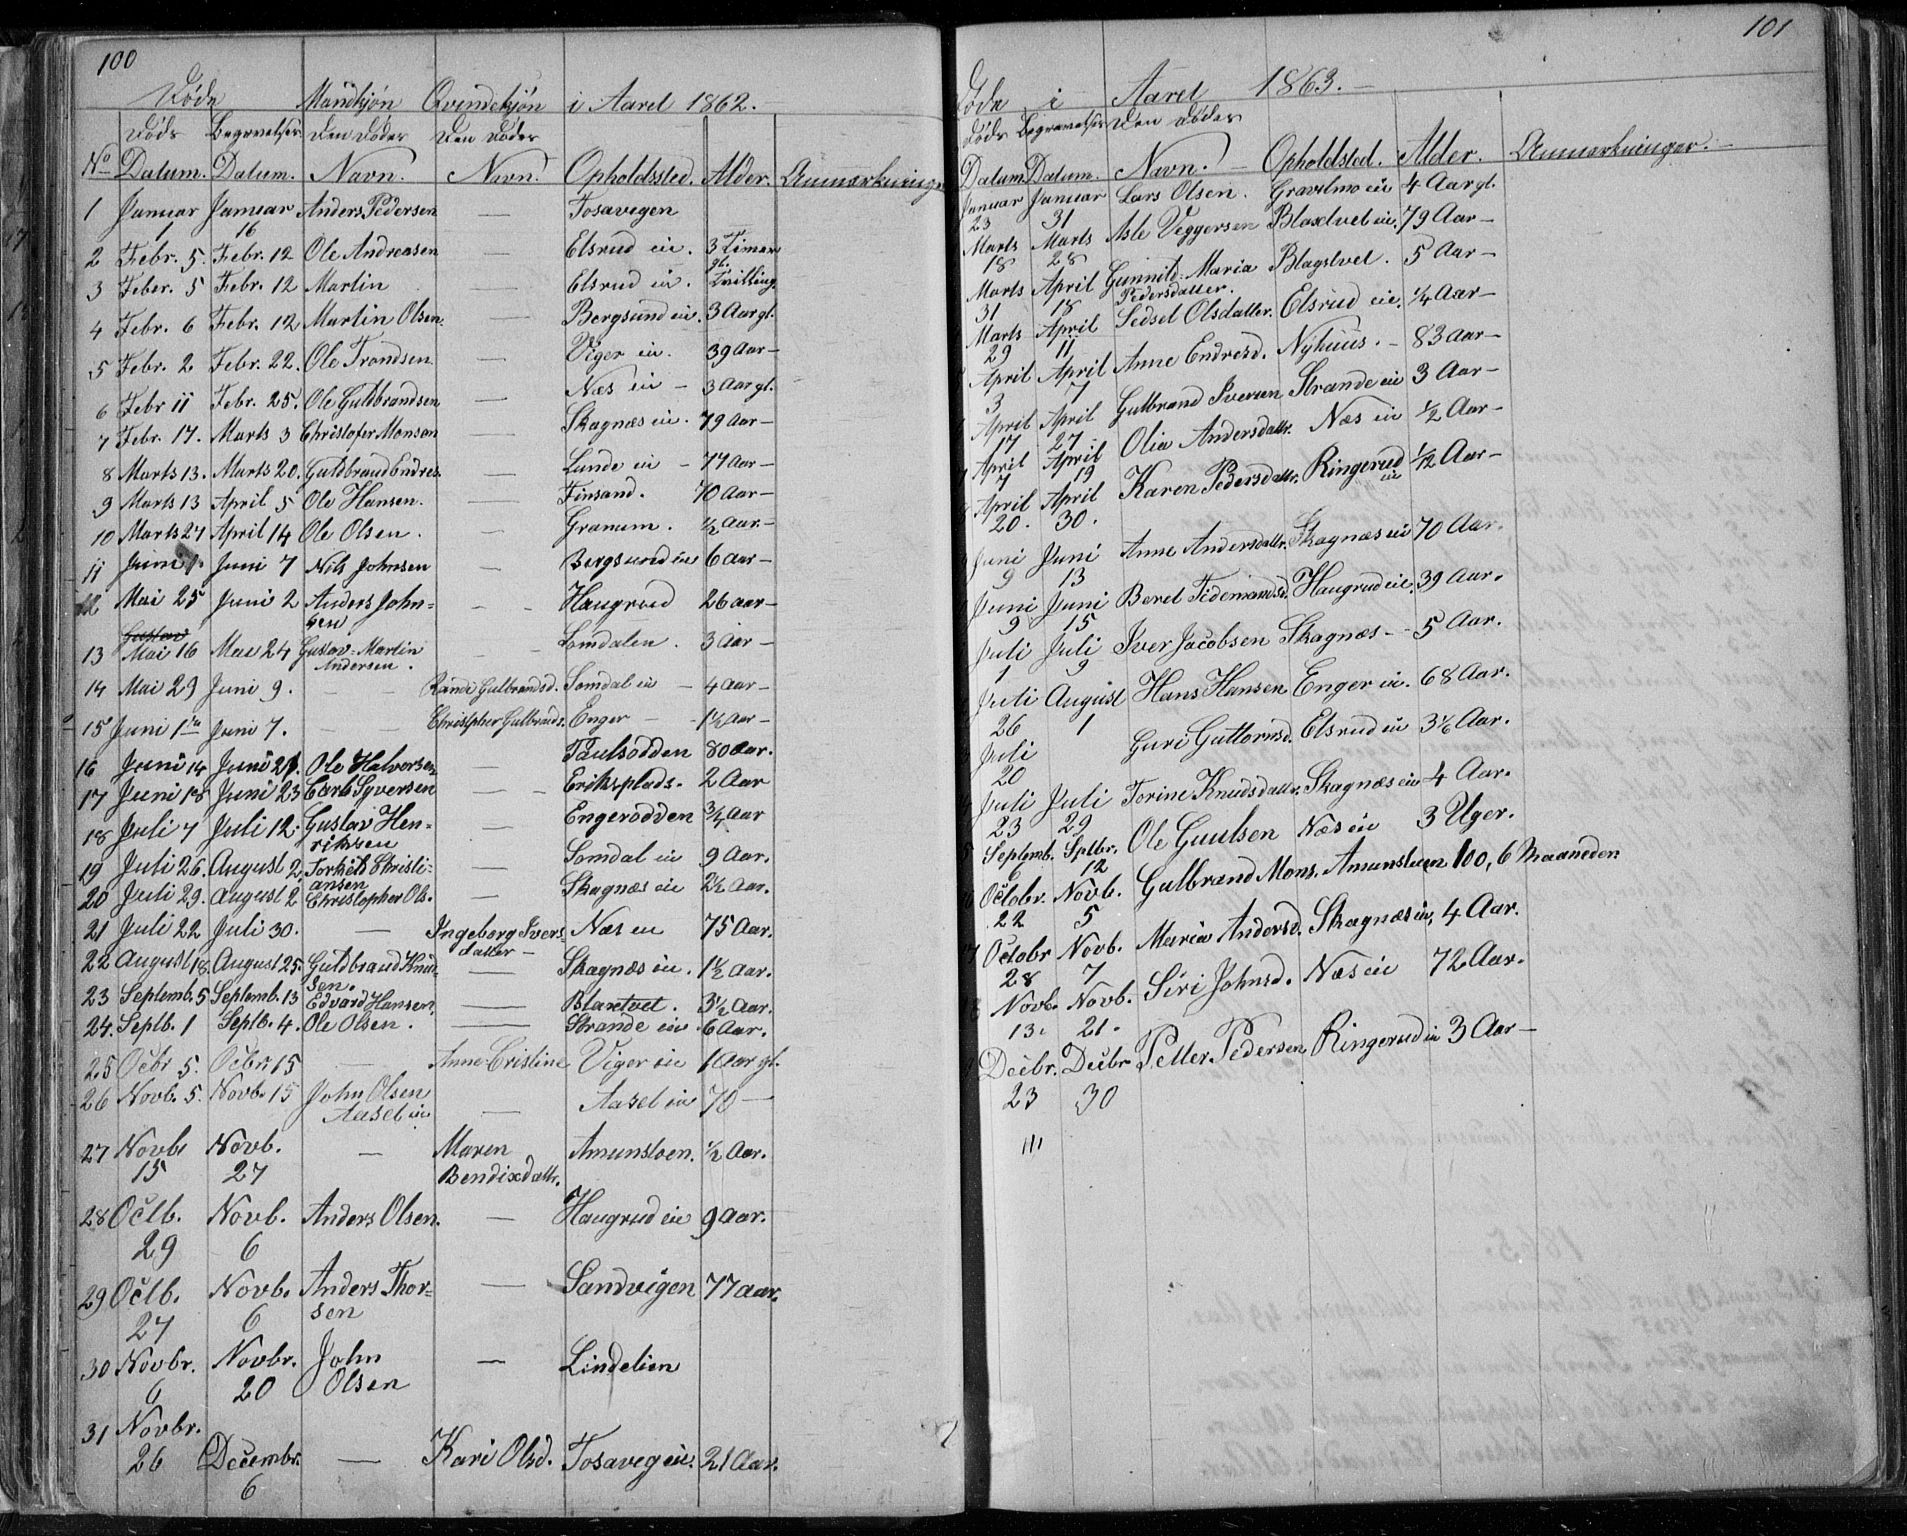 100
Døde Mandkjøn Qvindekjøn i Aaret 1862.
Døds Begravelses Den Dødes Den Dødes
No Datum. Datum. Navn. Navn. Opholdssted. Alder. Anmærkninger
1 Januar 1 Januar 16 Anders Pedersen — Tosavegen
2 Febr. 5. Febr. 12 Ole Andreasen — Elsrud eie. 3 Timer gl.
3 Feber. 5 Febr. 12 Martin — Elsrud ei. Tvilling.
4 Febr. 6 Febr. 12 Martin Olsen. — Bergsund eie. 3 Aar gl.
5 Febr. 2 Febr. 22. Ole Trondsen — Viger eie. 39 Aar —
6 Febr 11 Febr. 25. Ole Guldbrandsen — Næs eie — 3 Aar gl.
7 Febr. 17. Marts 3 Christofer Monsen — Skagnæs eie. 79 Aar —
8 Marts 13. Marts 20. Guldbrand Endres. — Lunde eie — 77 Aar —
9 Marts 13 April 5 Ole Hansen. — Finsand. 70 Aar —
10 Marts 27 April 14 Ole Olsen. — Granum. ½ Aar. —
11 Juni 1. Juni 7 Nils Johnsen — Bergsund eie 6 Aar —
12 Mai 25 Juni 2 Anders John= sen — — Haugrud 26 aar —
Gustav
13 Mai 16 Mai 24 Gustav-Martin Andersen. — — Lomdalen. 3 Aar —
14 Mai 29 Juni 9. — — Rande Gulbrandsd. Somdal eie — 4 Aar —
15 Juni 1ste Juni 7. — — Christpher Gulbrands. Enger — 1½ Aar —
16 Juni 14 Juni 21. Ole Halvorsen — Paulsodden 80 Aar.
17 Juni 18 Juni 23 Carl Syversen — — Eriksplads. 2 Aar
18 Juli 7 Juli 12. Gustav Hen= riksen — Engerodden ¾ Aar
19 Juli 26. August 2. Torkild Christi= ansen — Somdal eie 9 Aar.
20 Juli 29. August 2 Christopher Ols. — Skagnæs eie 2½ Aar.
21 Juli 22 Juli 30. — Ingeborg Ivers= datter — Næs eie 75 Aar.
22 August 18. August 25. Guldbrand Knud= sen. — Skagnæs eie. 1½ Aar.
23 Septemb. 5 Septemb. 13 Edvard Hansen. — Blaxtvet. 3½ Aar.
24. Septb. 1 Septb. 4. Ole Olsen. — Strande eie 6 Aar.
25 Octbr 5. Octbr 15 — Anne Cristine Viger eie 1 Aar gl.
26 Novb. 5. Novb. 15 John Olsen Aasel eie — Aasel eie 70 —
27 Novb 15 Novb. 27 — Maren Bendixdattr. Amunstoen. ½ Aar.
28 Octb. 29 Novb. 6 Anders Olsen. — Haugrud eie 9 Aar.
29 Octb. 27 Novb. 6 Anders Thor= sen — Sandvigen 77 aar.
30 Novbr. 6 Novbr. 20 John Olsen — Lindelien
31 Novbr. 26 Decembr. 6 — Kari Olsd. Tosaveg eie. 21 Aar.
101
Døde i Aaret 1863. —
Døds Begravelses Den Dødes
Datum Datum. Navn. — Opholdsted. Alder. Anmærkninger. —
Januar 23 Januar 31 Lars Olsen. Gravelmo eie 4 Aar gl.
Marts 18 Marts 28 Asle Veggersen Blaxtvet eie. 79 Aar —
Marts 31 April 18 Gunnild Maria Pedersdatter. Blagstvet. 5 Aar —
Marts 29 April 11 Sedsel Olsdatter. Elsrud eie. ¼ Aar —
April 3 April 7 Anne Endresd. Nyhuus. — 83 Aar —
April 17 April 27 Gulbrand Iversen Strande eie 3 Aar —
April 7 April 19 Olia Andersdattr. Næs eie ½ Aar —
April 20. April 30. Karen Pedersdattr. Ringerud eie 1/12 Aar —
Juni 9 Juni 13 Anne Andersdattr. Skagnæs eie 70 Aar.
Juni 9 Juni 15 Beret Tidemandsd. Haugrud eie. 39 Aar.
Juli 1 Juli 9 Iver Jacobsen Skagnæs — 5 Aar.
Juli 26 August 1 Hans Hansen Enger eie. 68 Aar.
Juli 20 Guri Guttormsd. Elsrud eie 3⅙ Aar.
Juli 23 Juli 29 Torine Knudsdattr. Skagnæs eie 4 Aar.
Septemb. 6 Septbr. 12 Ole Guulsen Næs eie 3 Uger.
Octobr. 22 Novb. 5 Gulbrand Mons. Amunstuen 100, 6 Maaneder.
Octobr 28 Novb. 7 Maria Andersd. Skagnæs eie, 4 Aar.
Novb. 13. Novb. 21. Siri Johnsd. Næs eie 72 Aar.
Decbr. 23 Decbr 30 Petter Pedersen Ringerud eie 3 Aar —